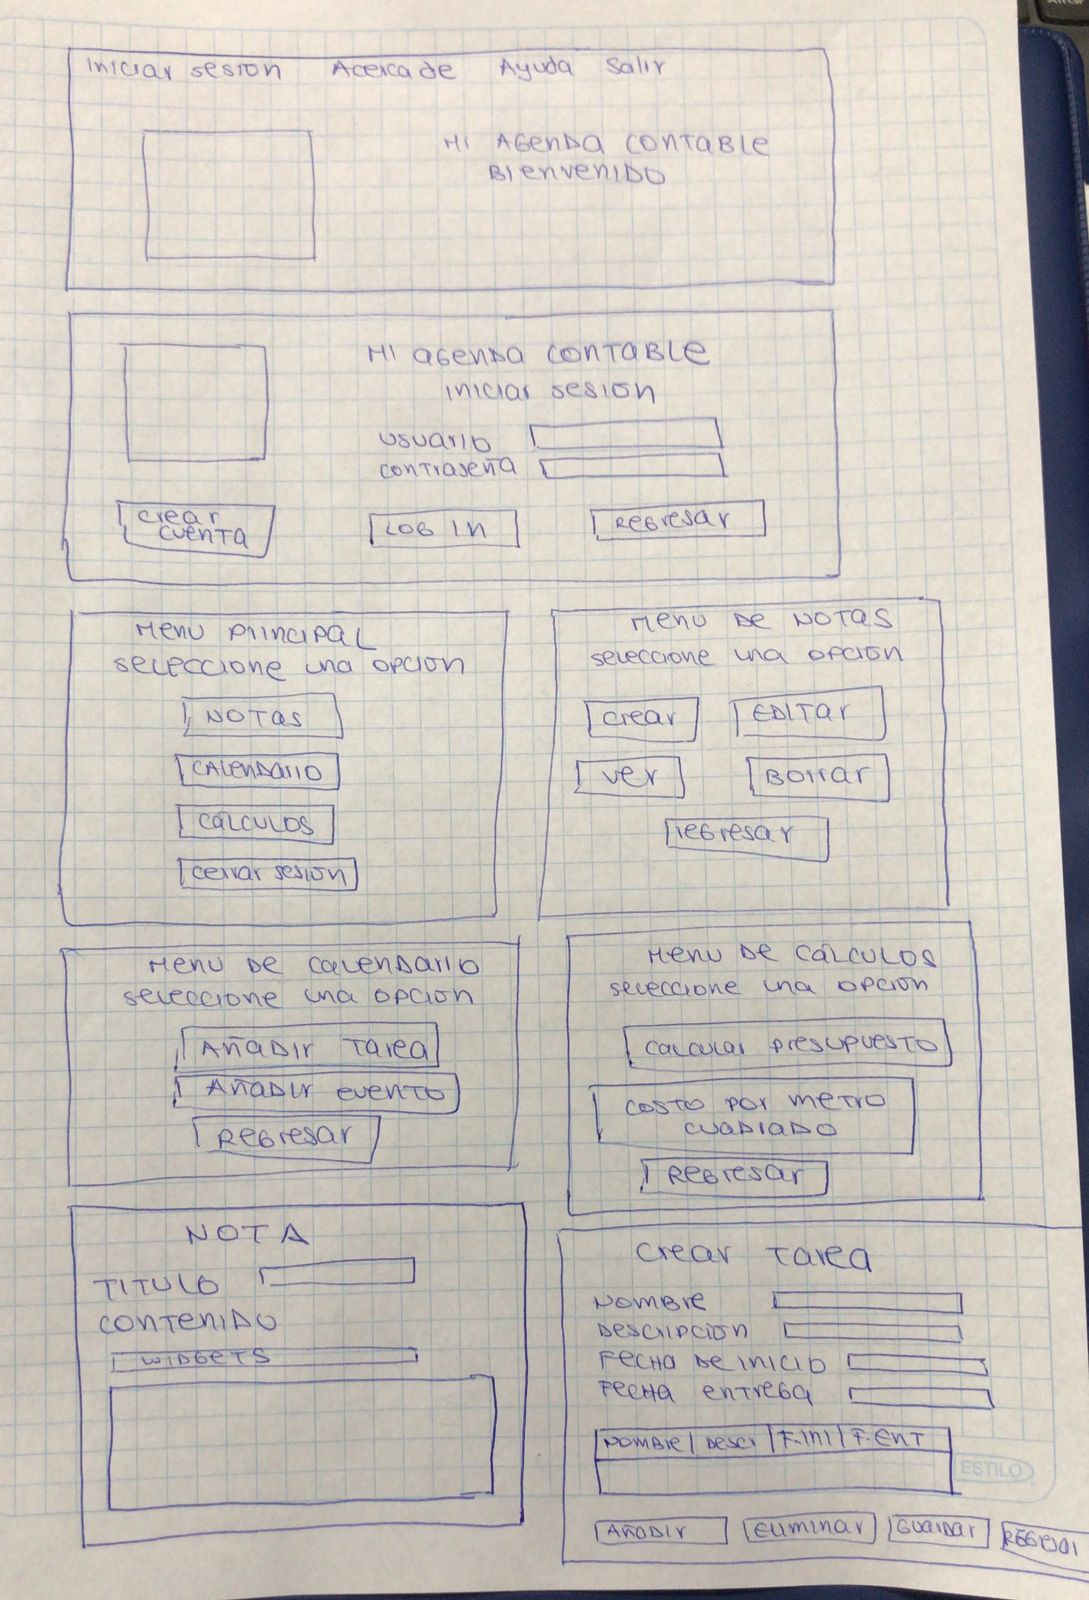 Iniciar sesion Acerca de Ayuda Salir
Mi Agenda Contable
Bienvenido
Mi agenda contable
Iniciar sesion
usuario
contraseña
Crear cuenta
Log In
Regresar
Menu principal
seleccione una opcion
Notas
Calendario
Calculos
Cerrar sesion
Menu de Notas
seleccione una opcion
Crear
Editar
Ver
Borrar
Regresar
Menu de calendario
seleccione una opcion
Añadir tarea
Añadir evento
Regresar
Menu de cálculos
seleccione una opcion
Calcular presupuesto
Costo por metro
cuadrado
Regresar
NOTA
TITULO
CONTENIDO
WIDGETS
Crear tarea
Nombre
Descripcion
Fecha de inicio
Fecha entrega
Nombre Descr F.Ini F.Ent
Añadir Eliminar Guardar
ESTILO